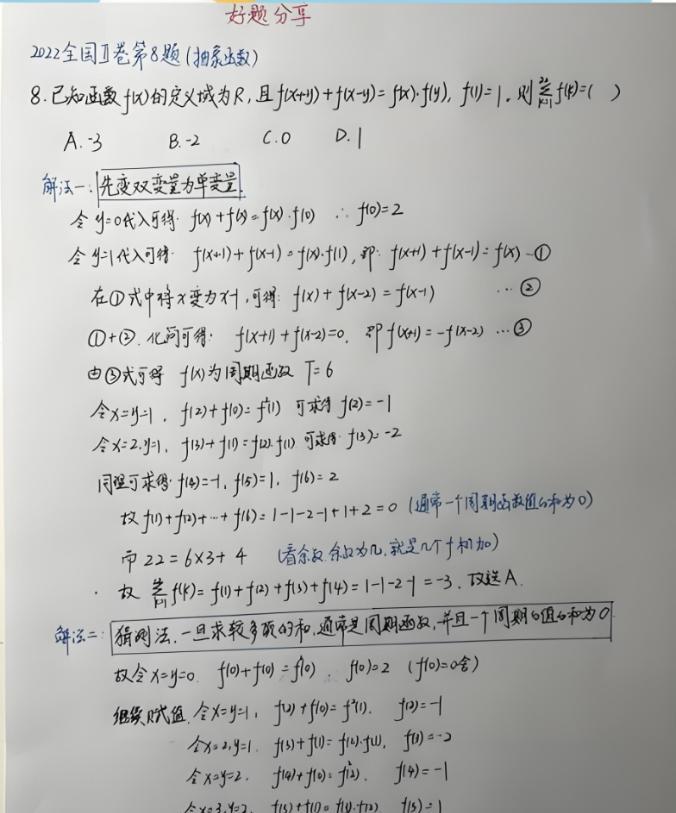 好题分享
2022全国II卷第8题(抽象函数)
8.已知函数f(x)的定义域为R,且f(x+y)+f(x-y)=f(x)·f(y), f(1)=1.则∑_{k=1}^{22}f(k)=( )
A.-3 B.-2 C.0 D.1
解法一:先变双变量为单变量.
令y=0代入可得: f(x)+f(x)=f(x)·f(0) ∴f(0)=2
令y=1代入可得: f(x+1)+f(x-1)=f(x)·f(1),即: f(x+1)+f(x-1)=f(x) …①
在①式中将x变为x-1,可得: f(x)+f(x-2)=f(x-1) …②
①+②.化简可得: f(x+1)+f(x-2)=0, 即f(x+1)=-f(x-2) …③
由③式可得 f(x)为周期函数 T=6
令x=y=1, f(2)+f(0)=f²(1) 可求得 f(2)=-1
令x=2,y=1, f(3)+f(1)=f(2)·f(1) 可求得 f(3)=-2
同理可求得:f(4)=-1, f(5)=1, f(6)=2
故f(1)+f(2)+…+f(6)=1-1-2-1+1+2=0 (通常一个周期函数值的和为0)
而 22=6×3+4 (看余数,余数为几,就是几个f相加)
故 ∑_{k=1}^{22}f(k)=f(1)+f(2)+f(3)+f(4)=1-1-2-1=-3. 故选A.
解法二:猜测法.一旦求较多项的和,通常是周期函数,并且一个周期的值的和为0
故令x=y=0. f(0)+f(0)=f²(0). f(0)=2 (f(0)=0舍)
继续赋值.令x=y=1, f(2)+f(0)=f²(1). f(2)=-1
令x=2,y=1. f(3)+f(1)=f(2)·f(1), f(3)=-2
令x=y=2. f(4)+f(0)=f²(2). f(4)=-1
令x=3,y=2. f(5)+f(1)=f(3)·f(2) f(5)=1